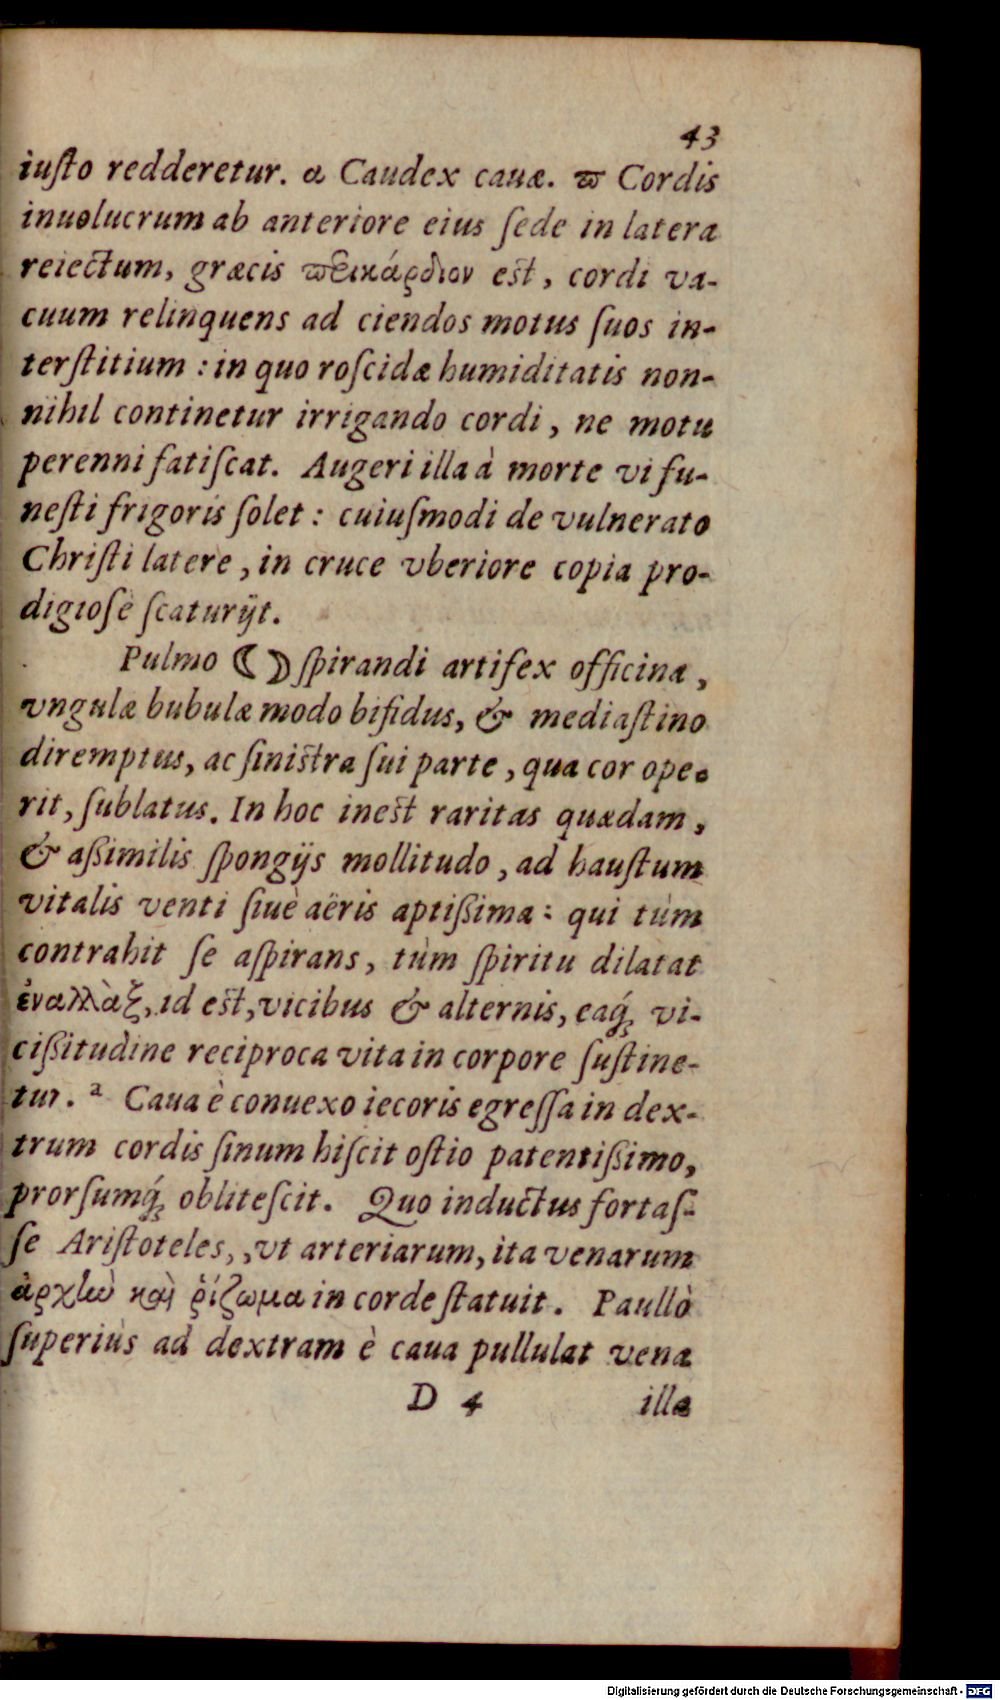 43
iuſto redderetur. α Caudex cauæ. ϖ Cordis
inuolucrum ab anteriore eius ſede in latera
reiectum, græcis ϖεικάρδιον eſt, cordi va-
cuum relinquens ad ciendos motus ſuos in-
terſtitium : in quo roſcidæ humiditatis non-
nihil continetur irrigando cordi, ne motu
perenni fatiſcat. Augeri illa à morte vi fu-
neſti frigoris ſolet : cuiuſmodi de vulnerato
Chriſti latere, in cruce vberiore copia pro-
digioſè ſcaturijt.
Pulmo ☾ ☽ ſpirandi artifex officinæ,
vngulæ bubulæ modo bifidus, & mediaſtino
diremptus, ac ſiniſtra ſui parte, qua cor ope-
rit, ſublatus. In hoc ineſt raritas quædam,
& aßimilis ſpongijs mollitudo, ad hauſtum
vitalis venti ſiuè aëris aptißima : qui tùm
contrahit ſe aſpirans, tùm ſpiritu dilatat
ἐναλλὰξ, id eſt, vicibus & alternis, eaq́; vi-
cißitudine reciproca vita in corpore ſuſtine-
tur. ª Caua è conuexo iecoris egreſſa in dex-
trum cordis ſinum hiſcit oſtio patentißimo,
prorſumq́; obliteſcit. Quo inductus fortaſ-
ſe Ariſtoteles, , vt arteriarum, ita venarum
ἀρχὴν καὶ ῥίζωμα in corde ſtatuit. Paullò
ſuperiùs ad dextram è caua pullulat vena
D 4 illa
Digitalisierung gefördert durch die Deutsche Forschungsgemeinschaft - DFG